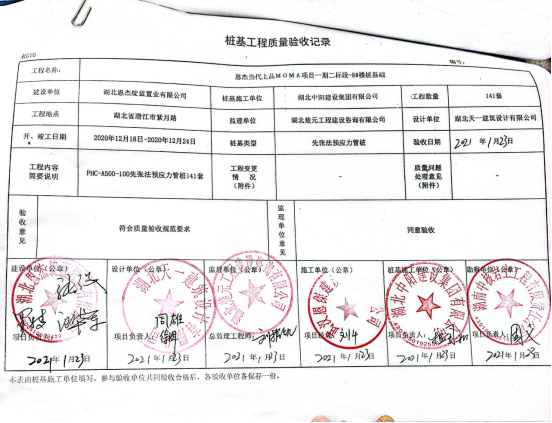 桩基工程质量验收记录
表G10 编号:
工程名称: 恩杰当代上品MOMA项目一期二标段-8#楼桩基础
建设单位 湖北恩杰绽蓝置业有限公司 桩基施工单位 湖北中阳建设集团有限公司 工程数量 141套
工程地点 湖北省潜江市紫月路 监理单位 湖北楚元工程建设咨询有限公司 设计单位 湖北天一建筑设计有限公司
开、竣工日期 2020年12月18日-2020年12月24日 桩基类型 先张法预应力管桩 验收日期 2021年1月23日
工程内容 工程变更 质量问题
简要说明 PHC-A500-100先张法预应力管桩141套 情况 - 处理意见 -
(附件) (附件)
验收意见 符合质量验收规范要求 监理单位意见 同意验收
建设单位(公章) 设计单位(公章) 监理单位(公章) 施工单位(公章) 桩基施工单位(公章) 勘察单位(公章)
项目负责人: 项目负责人: 总监理工程师: 项目经理: 项目负责人: 项目负责人:
2021年1月23日 2021年1月23日 2021年1月23日 2021年1月23日 2021年1月23日 2021年1月23日
本表由桩基施工单位填写,参与验收单位共同验收合格后,各验收单位各保存一份。